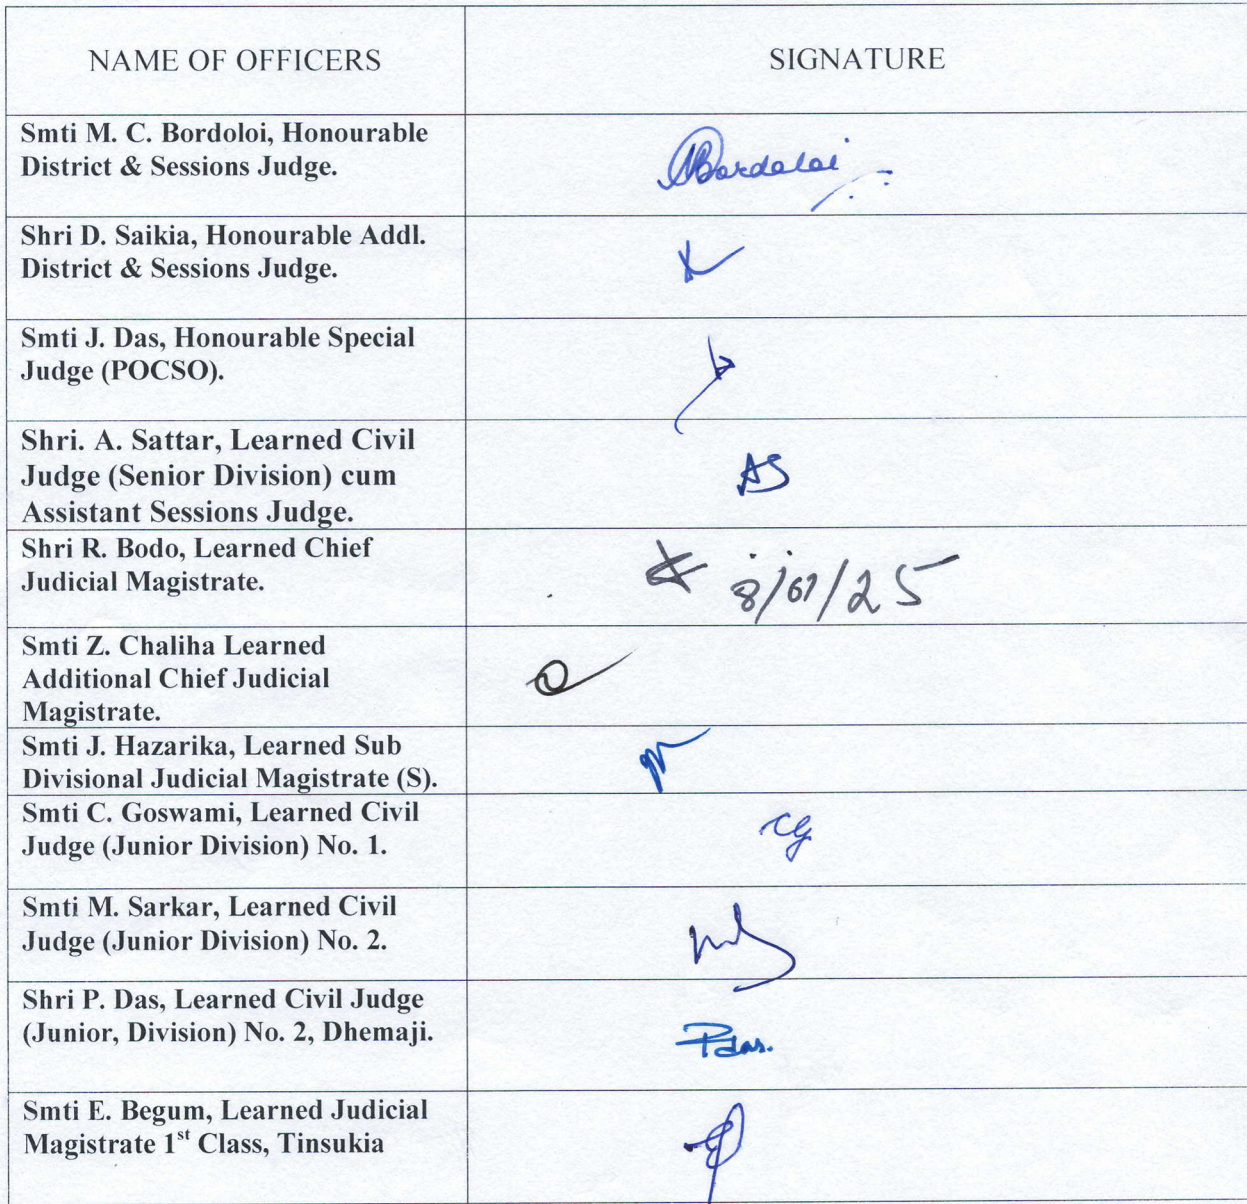 NAME OF OFFICERS
SIGNATURE
Smti M. C. Bordoloi, Honourable
District & Sessions Judge.
Bordoloi
Shri D. Saikia, Honourable Addl.
District & Sessions Judge.
Smti J. Das, Honourable Special
Judge (POCSO).
Shri. A. Sattar, Learned Civil
Judge (Senior Division) cum
Assistant Sessions Judge.
AS
Shri R. Bodo, Learned Chief
Judicial Magistrate.
Smti Z. Chaliha Learned
Additional Chief Judicial
Magistrate.
Smti J. Hazarika, Learned Sub
Divisional Judicial Magistrate (S).
Smti C. Goswami, Learned Civil
Judge (Junior Division) No. 1.
CG
Smti M. Sarkar, Learned Civil
Judge (Junior Division) No. 2.
Shri P. Das, Learned Civil Judge
(Junior, Division) No. 2, Dhemaji.
Pdas.
Smti E. Begum, Learned Judicial
Magistrate 1st Class, Tinsukia